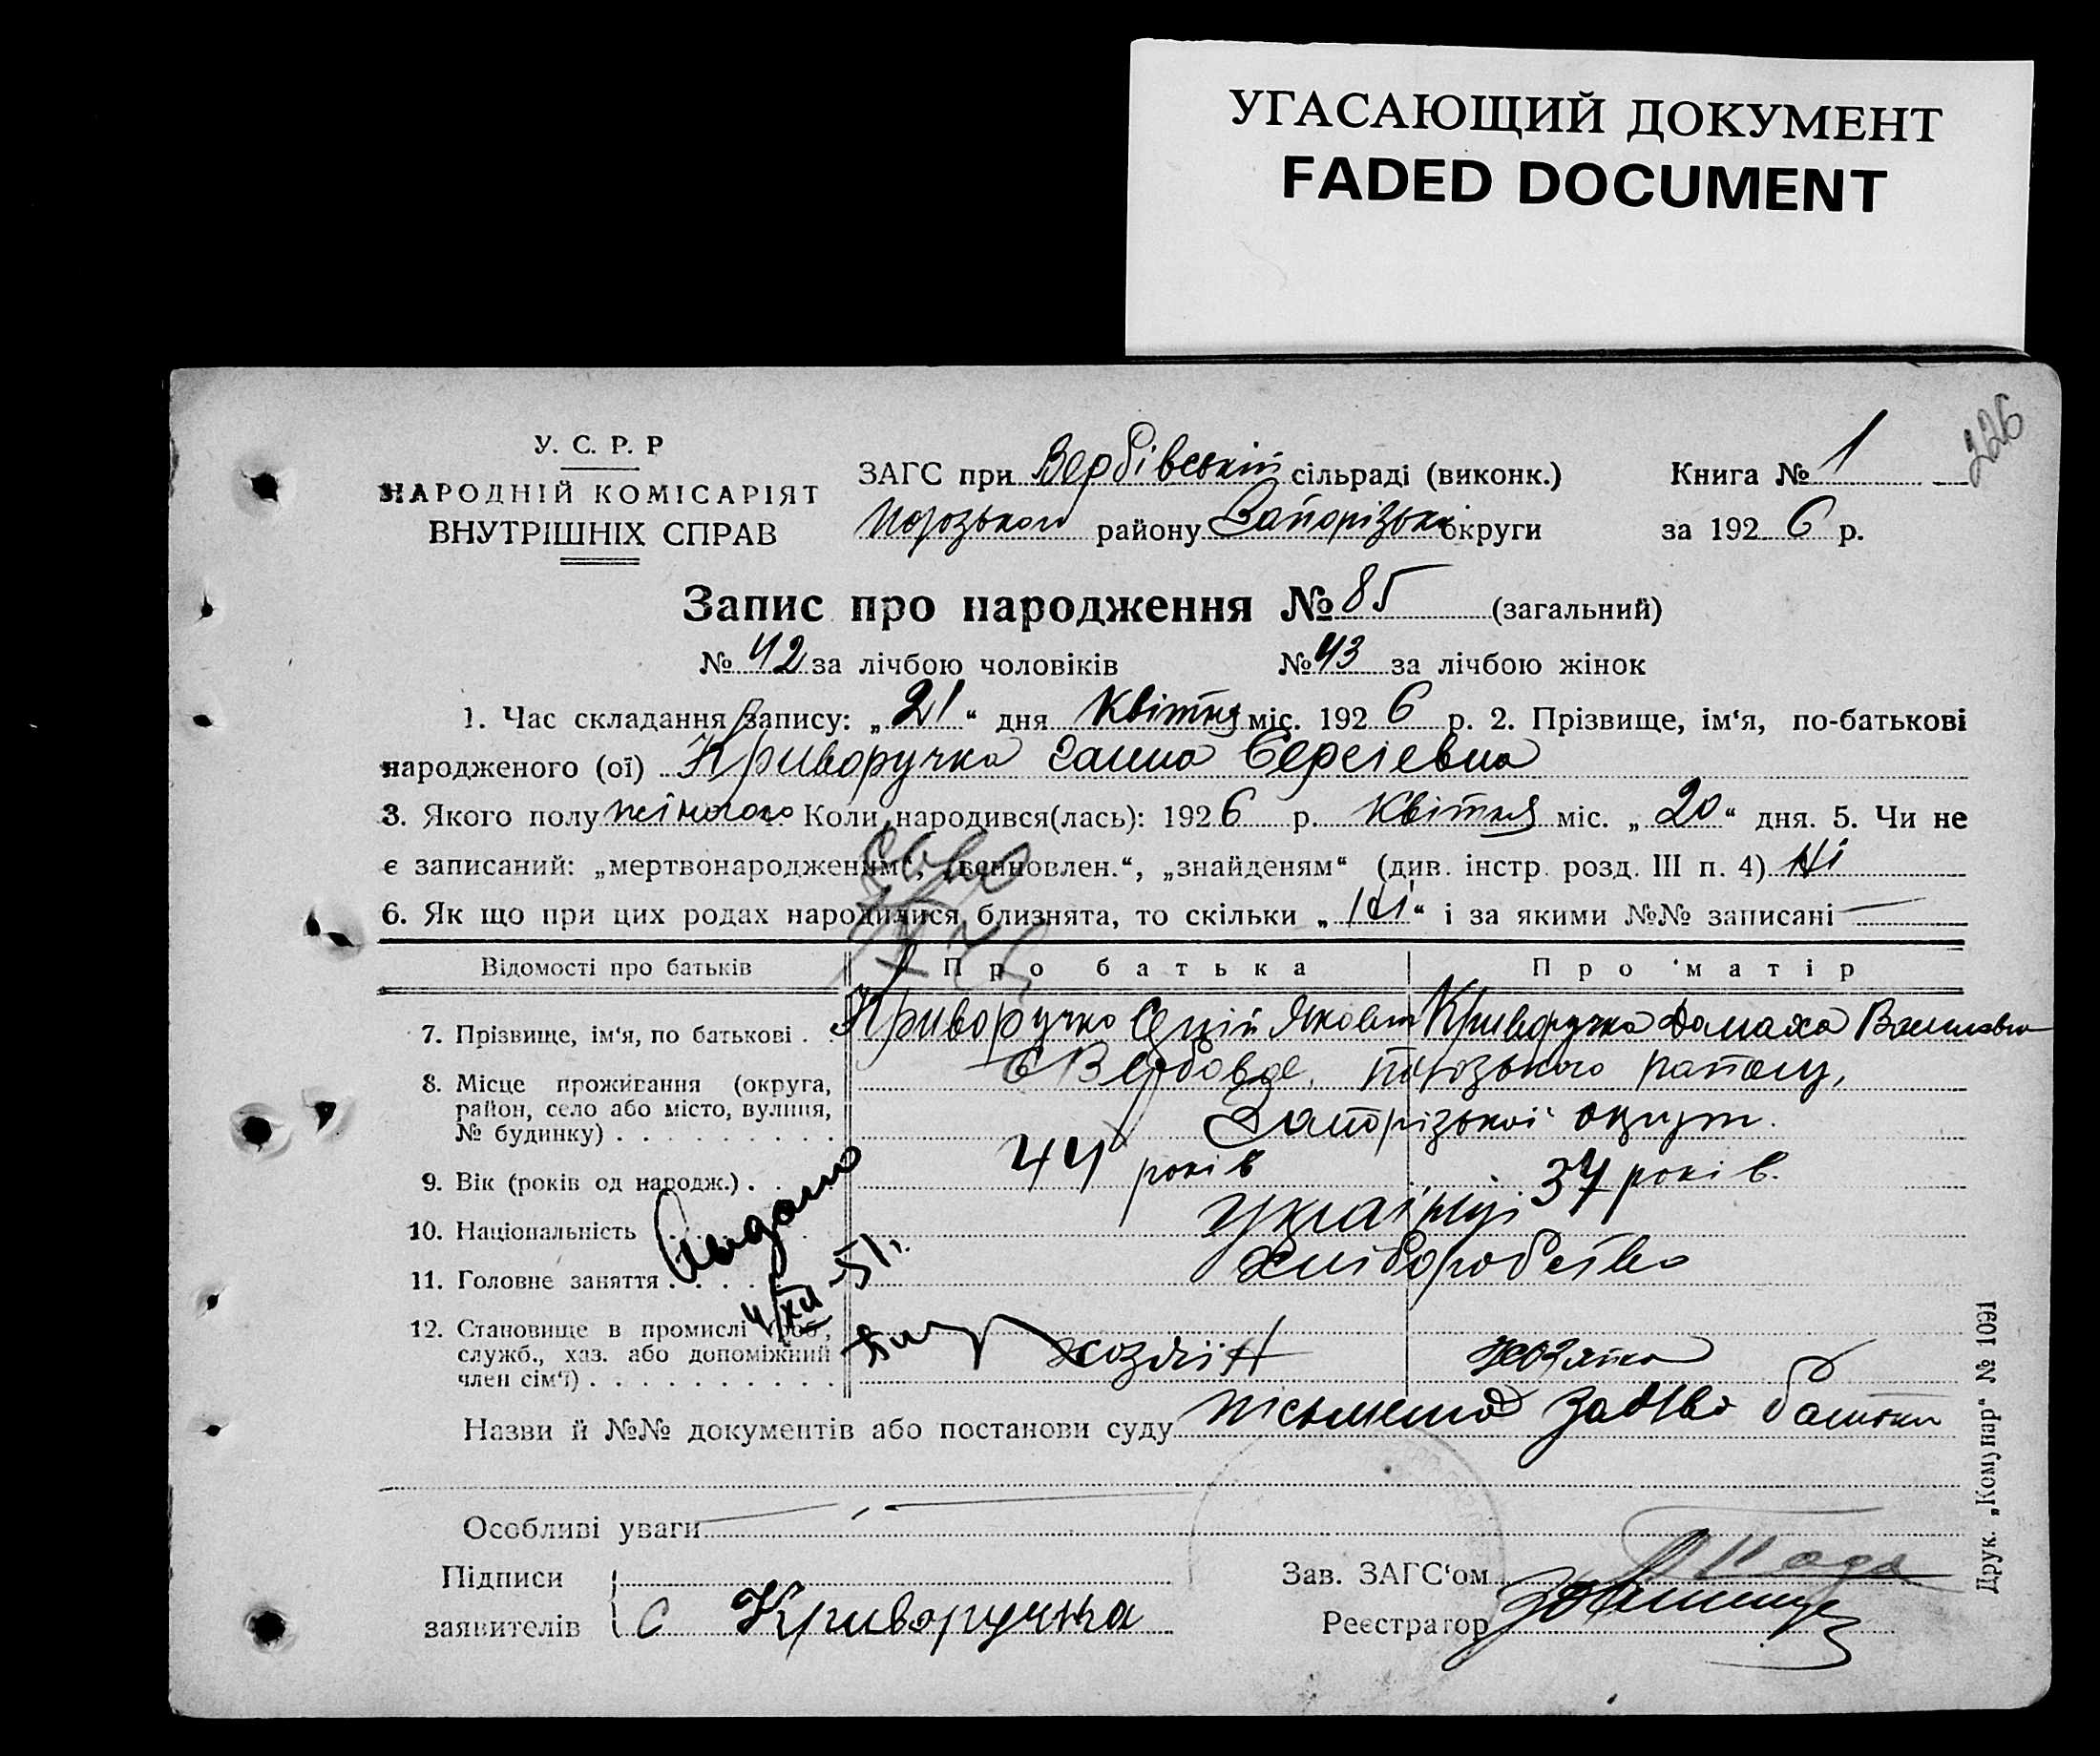 УГАСАЮЩИЙ ДОКУМЕНТ
FADED DOCUMENT
226
У. С. Р. Р
НАРОДНІЙ КОМІСАРІЯТ
ВНУТРІШНІХ СПРАВ
ЗАГС при Вербівській сільраді (виконк.)
району Запорізької округи
Книга № 1
за 1926 р.
Запис про народження № 85 (загальний)
№ 42 за лічбою чоловіків № 43 за лічбою жінок
1. Час складання запису: „21“ дня квітня міс. 1926 р. 2. Прізвище, ім‘я, по-батькові
народженого (ої) Криворучка Ганна Сергіевна
3. Якого полу жіночого Коли народився(лась): 1926 р. квітня міс. „20“ дня. 5. Чи не
є записаний: „мертвонародженим“, „всиновлен.“, „знайденям“ (див. інстр. розд. III п. 4) Ні
6. Як що при цих родах народилися близнята, то скільки „Ні“ і за якими №№ записані —
Відомості про батьків
Про батька
Про матір
7. Прізвище, ім‘я, по батькові . Криворучко Якович Криворучка Домаха
8. Місце проживання (округа,
район, село або місто, вулиця,
№ будинку)
с Вербовое,
Запорізької округи.
9. Вік (років од народж.) . 44 років 37 років.
10. Національність Українці
11. Головне заняття Хліборобство
12. Становище в промислі (роб.,
служб., хаз. або допоміжний
член сім‘ї)
хозяїн
хозяйка
4/XII-51г.
Назви й №№ документів або постанови суду батьки
Особливі уваги
Підписи
заявителів
С Криворучка
Зав. ЗАГС‘ом
Реєстратор
Друк. „Комунар“ № 1091